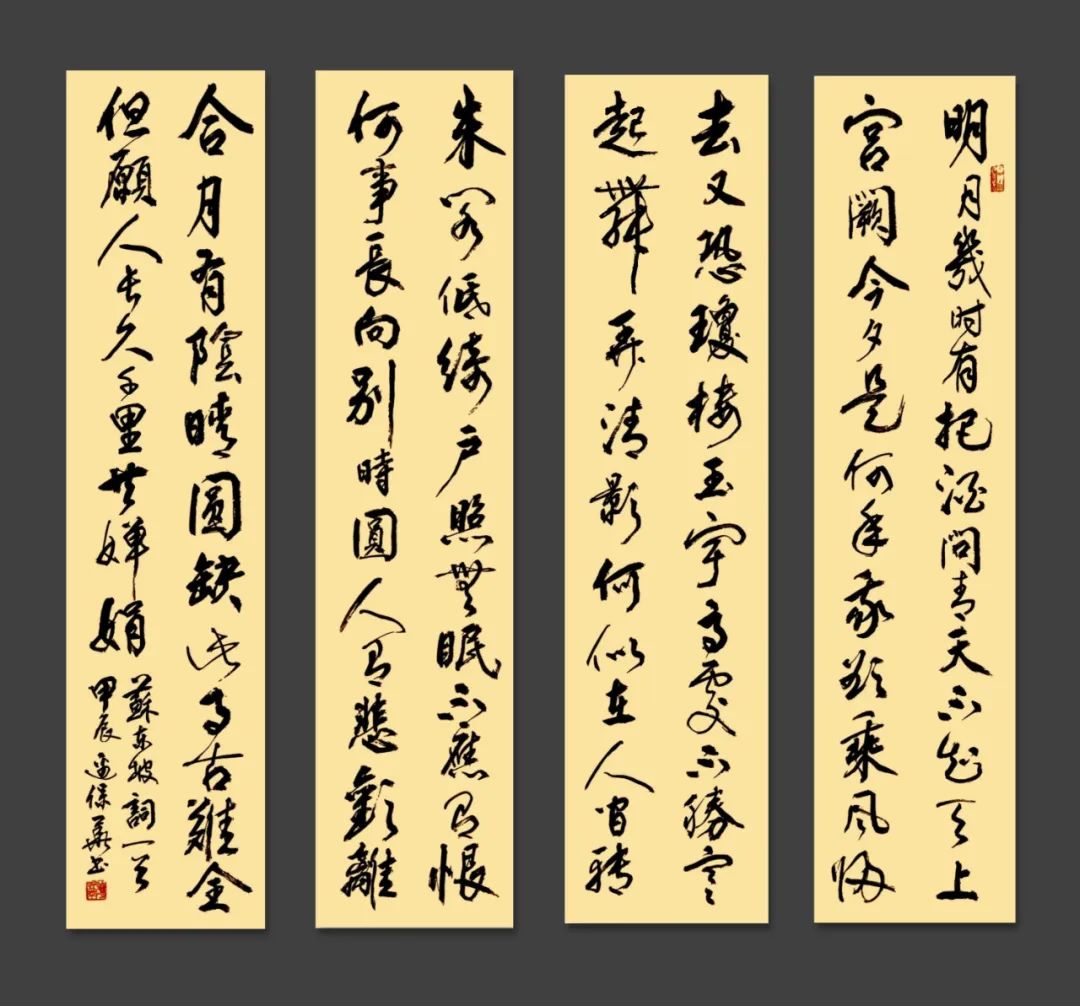 明月幾时有把酒問青天不知天上
宫闕今夕是何年我欲乘风归
去又恐瓊楼玉宇高處不勝寒
起舞弄清影何似在人间转
朱阁低绮户照無眠不應有恨
何事長向别時圓人有悲歡離
合月有陰晴圓缺此事古難全
但願人长久千里共嬋娟
蘇东坡詞一首
甲辰保華书